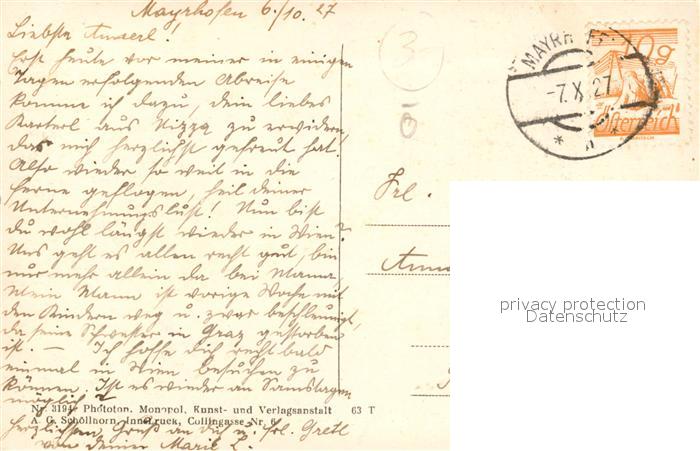 Mayrhofen 6./10. 27
Liebste Annerl!
Erst heute vor meiner in einigen
Tagen erfolgenden Abreise
komme ich dazu, dein liebes
Karterl aus Nizza zu erwidern,
das mich herzlichst gefreut hat!
Also wieder so weit in die
Ferne geflogen, heil deiner
Unternehmungslust! Nun bist
du wohl längst wieder in Wien?
Uns geht es allen recht gut, bin
nur mehr allein da bei Mama.
Mein Mann ist vorige Woche mit
den Kindern weg u. zwar beschleunigt,
da seine Schwester in Graz gestorben
ist. — Ich hoffe dich recht bald
einmal in Wien besuchen zu
können. Ist es wieder an Samstagen
möglich?
Nr. 3194 Phototon. Monopol, Kunst- und Verlagsanstalt 63 T
A. G. Schöllhorn, Innsbruck, Collingasse Nr. 6
Herzlichsten Gruß an dich u. Frl. Gretl
von deiner Marie L.
3
MAYRH
-7.X.27
* *
10 g
Österreich
Frl.
privacy protection
Datenschutz